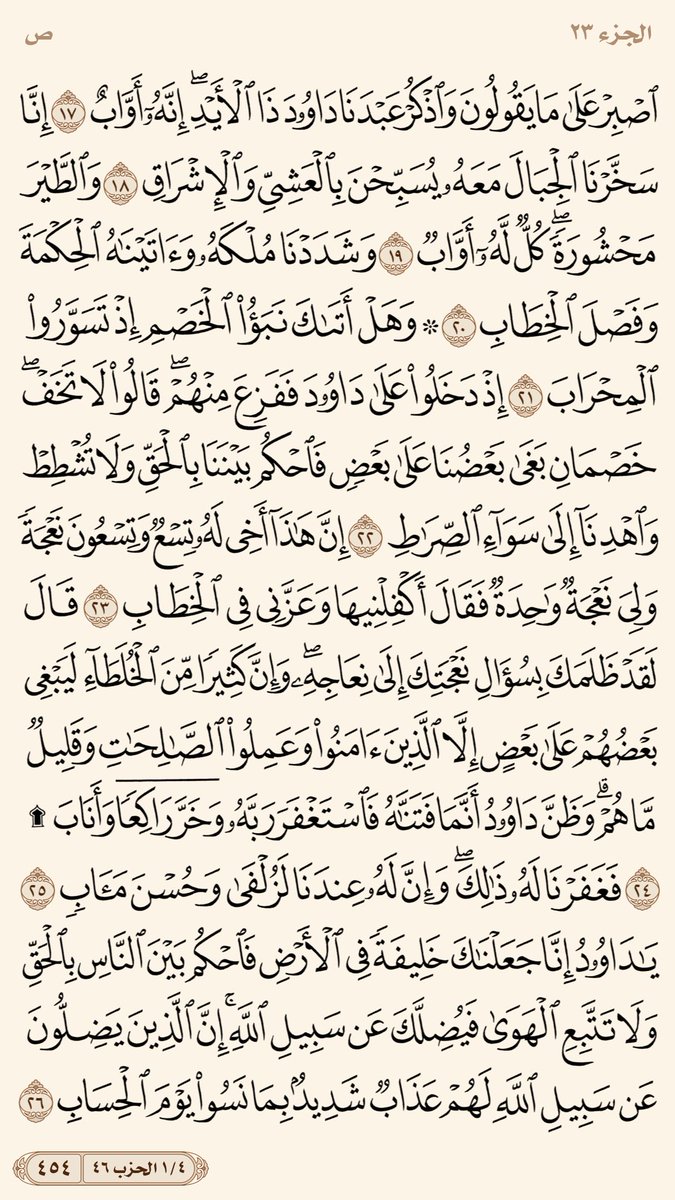 الجزء ٢٣
ص
ٱصْبِرْ عَلَىٰ مَا يَقُولُونَ وَٱذْكُرْ عَبْدَنَا دَاوُۥدَ ذَا ٱلْأَيْدِ ۖ إِنَّهُۥٓ أَوَّابٌ ١٧ إِنَّا
سَخَّرْنَا ٱلْجِبَالَ مَعَهُۥ يُسَبِّحْنَ بِٱلْعَشِىِّ وَٱلْإِشْرَاقِ ١٨ وَٱلطَّيْرَ
مَحْشُورَةً ۖ كُلٌّ لَّهُۥٓ أَوَّابٌ ١٩ وَشَدَدْنَا مُلْكَهُۥ وَءَاتَيْنَٰهُ ٱلْحِكْمَةَ
وَفَصْلَ ٱلْخِطَابِ ٢٠ ۞ وَهَلْ أَتَىٰكَ نَبَؤُا۟ ٱلْخَصْمِ إِذْ تَسَوَّرُوا۟
ٱلْمِحْرَابَ ٢١ إِذْ دَخَلُوا۟ عَلَىٰ دَاوُۥدَ فَفَزِعَ مِنْهُمْ ۖ قَالُوا۟ لَا تَخَفْ ۖ
خَصْمَانِ بَغَىٰ بَعْضُنَا عَلَىٰ بَعْضٍ فَٱحْكُم بَيْنَنَا بِٱلْحَقِّ وَلَا تُشْطِطْ
وَٱهْدِنَآ إِلَىٰ سَوَآءِ ٱلصِّرَٰطِ ٢٢ إِنَّ هَٰذَآ أَخِى لَهُۥ تِسْعٌ وَتِسْعُونَ نَعْجَةً
وَلِىَ نَعْجَةٌ وَٰحِدَةٌ فَقَالَ أَكْفِلْنِيهَا وَعَزَّنِى فِى ٱلْخِطَابِ ٢٣ قَالَ
لَقَدْ ظَلَمَكَ بِسُؤَالِ نَعْجَتِكَ إِلَىٰ نِعَاجِهِۦ ۖ وَإِنَّ كَثِيرًا مِّنَ ٱلْخُلَطَآءِ لَيَبْغِى
بَعْضُهُمْ عَلَىٰ بَعْضٍ إِلَّا ٱلَّذِينَ ءَامَنُوا۟ وَعَمِلُوا۟ ٱلصَّٰلِحَٰتِ وَقَلِيلٌ
مَّا هُمْ ۗ وَظَنَّ دَاوُۥدُ أَنَّمَا فَتَنَّٰهُ فَٱسْتَغْفَرَ رَبَّهُۥ وَخَرَّ رَاكِعًا وَأَنَابَ ۩
٢٤ فَغَفَرْنَا لَهُۥ ذَٰلِكَ ۖ وَإِنَّ لَهُۥ عِندَنَا لَزُلْفَىٰ وَحُسْنَ مَـَٔابٍ ٢٥
يَٰدَاوُۥدُ إِنَّا جَعَلْنَٰكَ خَلِيفَةً فِى ٱلْأَرْضِ فَٱحْكُم بَيْنَ ٱلنَّاسِ بِٱلْحَقِّ
وَلَا تَتَّبِعِ ٱلْهَوَىٰ فَيُضِلَّكَ عَن سَبِيلِ ٱللَّهِ ۚ إِنَّ ٱلَّذِينَ يَضِلُّونَ
عَن سَبِيلِ ٱللَّهِ لَهُمْ عَذَابٌ شَدِيدٌۢ بِمَا نَسُوا۟ يَوْمَ ٱلْحِسَابِ ٢٦
١/٤ الحزب ٤٦
٤٥٤